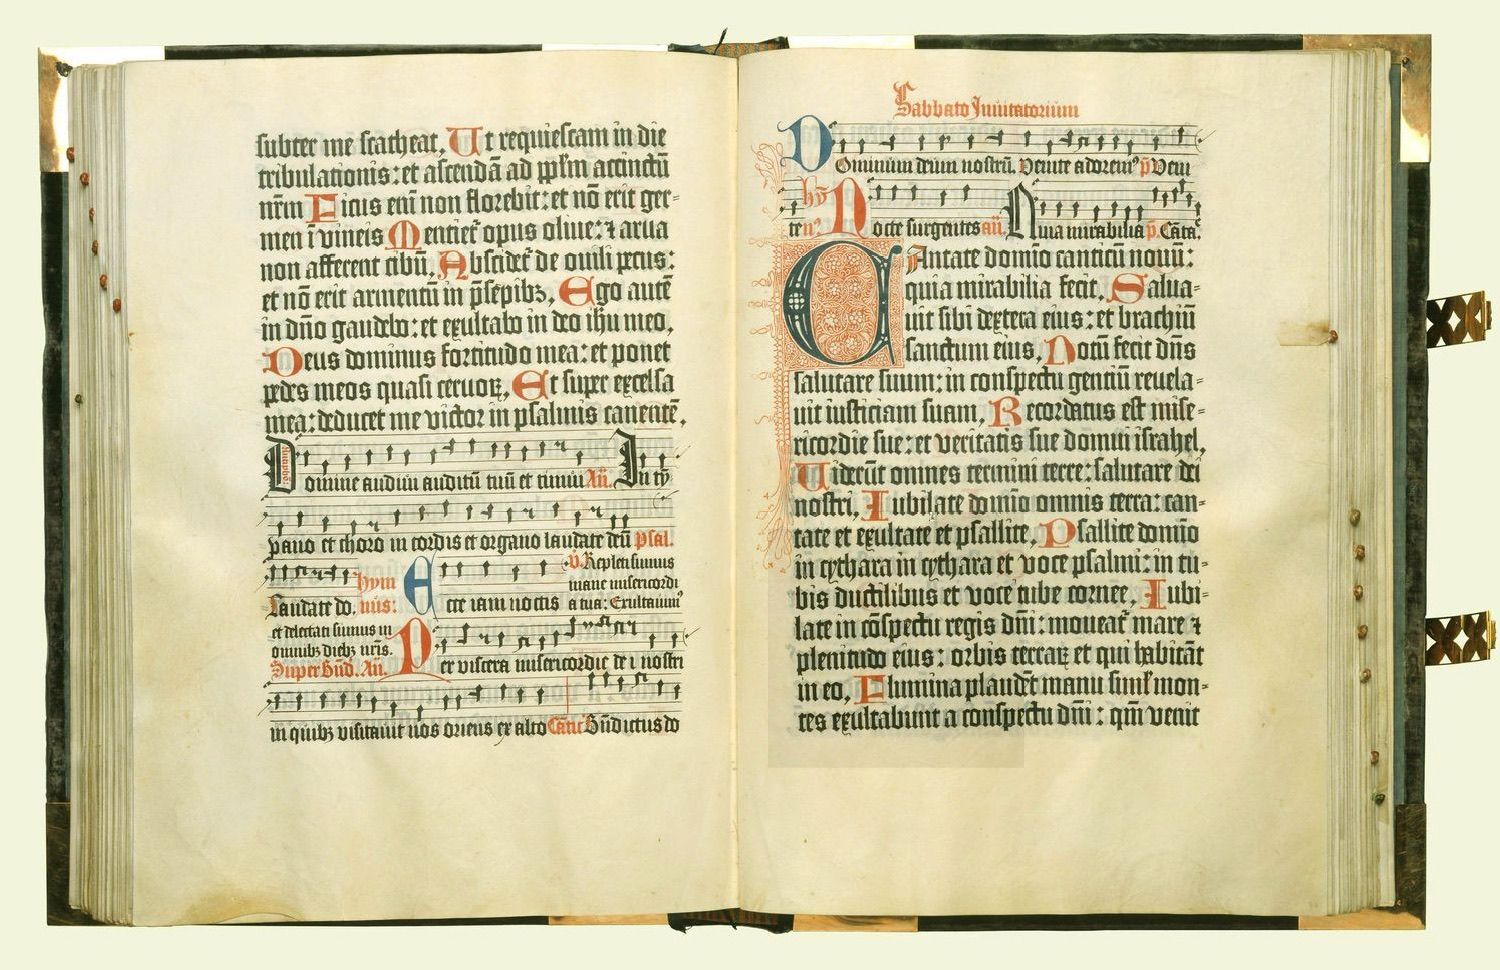 subter me scatheat. Ut requiescam in die
tribulationis: et ascendā ad pplm̄ accinctū
nrm̄ Ficus em̄ non florebit: et nō erit ger-
men ī vineis Mentiet᷑ opus oliue: ⁊ arua
non afferent cibū. Abscidet᷑ de ouili pecus:
et nō erit armentū in p̄sepibꝫ. Ego autē
in dn̄o gaudebo: et exultabo in deo ih̄u meo.
Deus dominus fortitudo mea: et ponet
pedes meos quasi ceruoꝝ. Et super excelsa
mea: deducet me victor in psalmis canentē.
Domine audiui auditū tuū et timui Añ. In ty
pano et choro in cordis et organo laudate deū Psal.
Laudate do. hym nus: Ecce iam noctis v̄. Repleti sumus
mane misericordi
a tua: Exultauim᷒
et delectati sumus in
omnibꝫ diebꝫ nr̄is.
Super Bn̄d. Añ. Per viscera misericordie de i nostri
in quibꝫ visitauit nos oriens ex alto Cātic Bn̄dictus do
Sabbato Inuitatorium
Dominum deum nostrū. Venite adorem᷒ p̄ Veni
te hȳ n᷒. Nocte surgentes añ. Quia mirabilia p̄. Cāta.
CAntate domīo canticū nouū:
quia mirabilia fecit. Salua-
uit sibi dextera eius: et brachiū
sanctum eius. Notū fecit dn̄s
salutare suum: in conspectu gentiū reuela-
uit iusticiam suam. Recordatus est mise-
ricordie sue: et veritatis sue domui israhel.
Uiderūt omnes termini terre: salutare dei
nostri. Iubilate domīo omnis terra: can-
tate et exultate et psallite. Psallite domīo
in cythara in cythara et voce psalmi: in tu-
bis ductilibus et voce tube cornee. Iubi-
late in cōspectu regis dn̄i: moueat᷑ mare ⁊
plenitudo eius: orbis terraꝝ et qui habitāt
in eo. Flumina plaudēt manu simƚ mon-
tes exultabunt a conspectu dn̄i: qm̄ venit